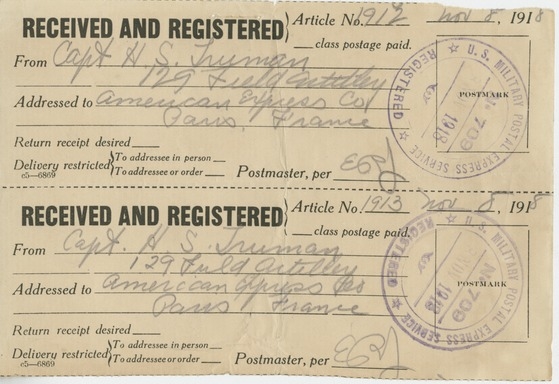 RECEIVED AND REGISTERED
Article No. 1912 Nov 8, 1918
class postage paid.
From Capt H. S. Truman
129 Field Artillery
Addressed to American Express Co
Paris, France
Return receipt desired
Delivery restricted { To addressee in person
To addressee or order
c5—6869
Postmaster, per
POSTMARK
★ U.S. MILITARY POSTAL EXPRESS SERVICE ★ REGISTERED
No 709
1918
RECEIVED AND REGISTERED
Article No. 1913 Nov 8, 1918
class postage paid.
From Capt. H. S. Truman
129 Field Artillery
Addressed to American Express Co
Paris France
Return receipt desired
Delivery restricted { To addressee in person
To addressee or order
c5—6869
Postmaster, per
POSTMARK
★ U.S. MILITARY POSTAL EXPRESS SERVICE ★ REGISTERED
No 709
1918